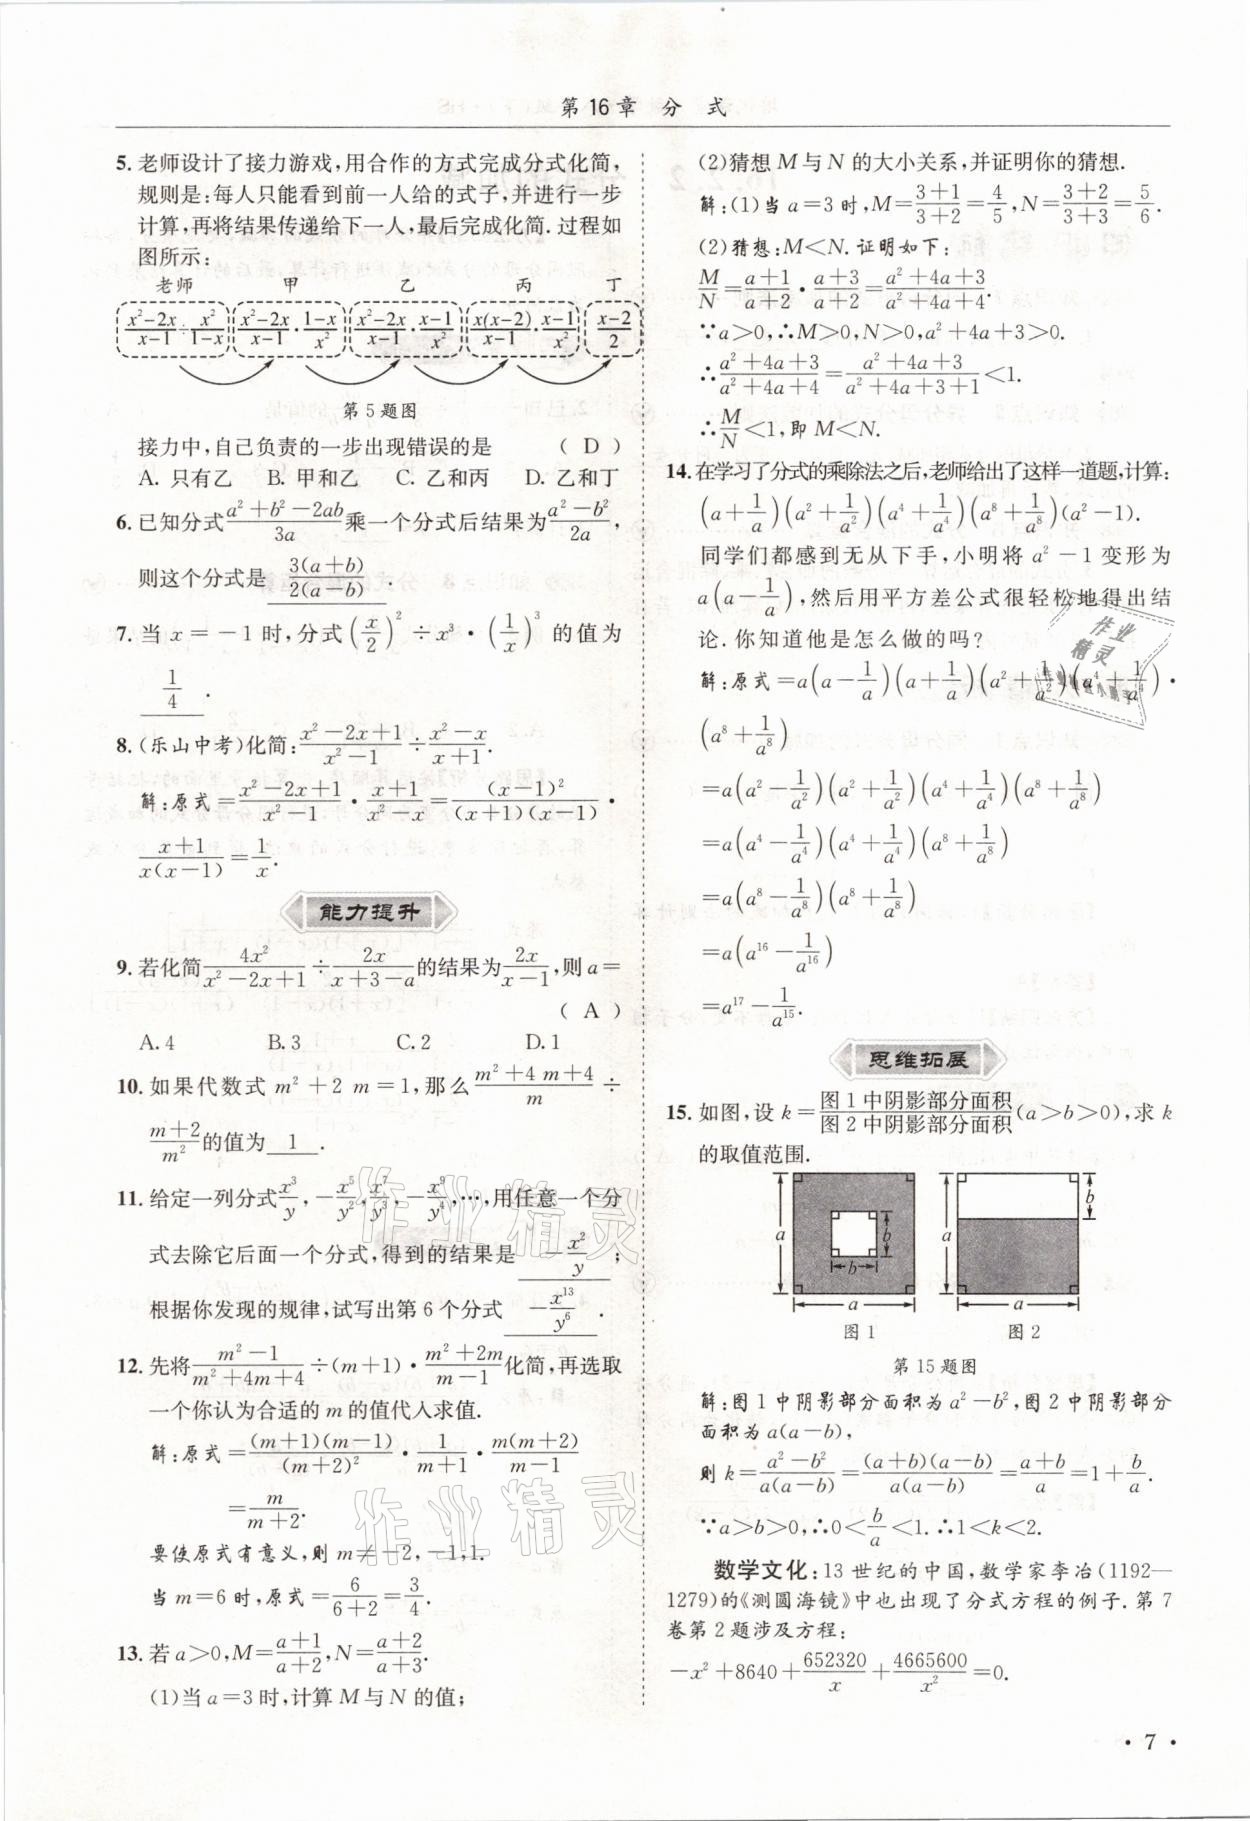 第16章 分 式
5. 老师设计了接力游戏,用合作的方式完成分式化简,
规则是:每人只能看到前一人给的式子,并进行一步
计算,再将结果传递给下一人,最后完成化简.过程如
图所示:
老师 甲 乙 丙 丁
(x²−2x)/(x−1)÷x²/(1−x) (x²−2x)/(x−1)·(1−x)/x² (x²−2x)/(x−1)·(x−1)/x² x(x−2)/(x−1)·(x−1)/x² (x−2)/2
第5题图
接力中,自己负责的一步出现错误的是 ( D )
A. 只有乙 B. 甲和乙 C. 乙和丙 D. 乙和丁
6. 已知分式(a²+b²−2ab)/3a乘一个分式后结果为(a²−b²)/2a,
则这个分式是 3(a+b)/2(a−b) .
7. 当 x=−1时,分式(x/2)²÷x³·(1/x)³的值为
1/4 .
8. (乐山中考)化简:(x²−2x+1)/(x²−1)÷(x²−x)/(x+1).
解:原式=(x²−2x+1)/(x²−1)·(x+1)/(x²−x)=(x−1)²/((x+1)(x−1))·
(x+1)/(x(x−1))=1/x.
能力提升
9. 若化简4x²/(x²−2x+1)÷2x/(x+3−a)的结果为2x/(x−1),则a=
( A )
A. 4 B. 3 C. 2 D. 1
10. 如果代数式 m²+2m=1,那么(m²+4m+4)/m÷
(m+2)/m²的值为 1 .
11. 给定一列分式x³/y,−x⁵/y²,x⁷/y³,−x⁹/y⁴,…,用任意一个分
式去除它后面一个分式,得到的结果是 −x²/y ;
根据你发现的规律,试写出第6个分式 −x¹³/y⁶ .
12. 先将(m²−1)/(m²+4m+4)÷(m+1)·(m²+2m)/(m−1)化简,再选取
一个你认为合适的m的值代入求值.
解:原式=(m+1)(m−1)/(m+2)²·1/(m+1)·m(m+2)/(m−1)
=m/(m+2).
要使原式有意义,则 m≠−2,−1,1.
当m=6时,原式=6/(6+2)=3/4.
13. 若a>0,M=(a+1)/(a+2),N=(a+2)/(a+3).
(1)当a=3时,计算M与N的值;
(2)猜想M与N的大小关系,并证明你的猜想.
解:(1)当a=3时,M=(3+1)/(3+2)=4/5,N=(3+2)/(3+3)=5/6.
(2)猜想:M<N.证明如下:
M/N=(a+1)/(a+2)·(a+3)/(a+2)=(a²+4a+3)/(a²+4a+4).
∵a>0,∴M>0,N>0,a²+4a+3>0.
∴(a²+4a+3)/(a²+4a+4)=(a²+4a+3)/(a²+4a+3+1)<1.
∴M/N<1,即M<N.
14. 在学习了分式的乘除法之后,老师给出了这样一道题,计算:
(a+1/a)(a²+1/a²)(a⁴+1/a⁴)(a⁸+1/a⁸)(a²−1).
同学们都感到无从下手,小明将 a²−1 变形为
a(a−1/a),然后用平方差公式很轻松地得出结
论.你知道他是怎么做的吗?
解:原式=a(a−1/a)(a+1/a)(a²+1/a²)(a⁴+1/a⁴)·
(a⁸+1/a⁸)
=a(a²−1/a²)(a²+1/a²)(a⁴+1/a⁴)(a⁸+1/a⁸)
=a(a⁴−1/a⁴)(a⁴+1/a⁴)(a⁸+1/a⁸)
=a(a⁸−1/a⁸)(a⁸+1/a⁸)
=a(a¹⁶−1/a¹⁶)
=a¹⁷−1/a¹⁵.
思维拓展
15. 如图,设k=图1中阴影部分面积/图2中阴影部分面积(a>b>0),求k
的取值范围.
a b b a
图1
a b a
图2
第15题图
解:图1中阴影部分面积为a²−b²,图2中阴影部分
面积为a(a−b),
则k=(a²−b²)/a(a−b)=(a+b)(a−b)/a(a−b)=(a+b)/a=1+b/a.
∵a>b>0,∴0<b/a<1.∴1<k<2.
数学文化:13世纪的中国,数学家李冶(1192—
1279)的《测圆海镜》中也出现了分式方程的例子.第7
卷第2题涉及方程:
−x²+8640+652320/x+4665600/x²=0.
· 7 ·
作业精灵
作业精灵
作业
精灵